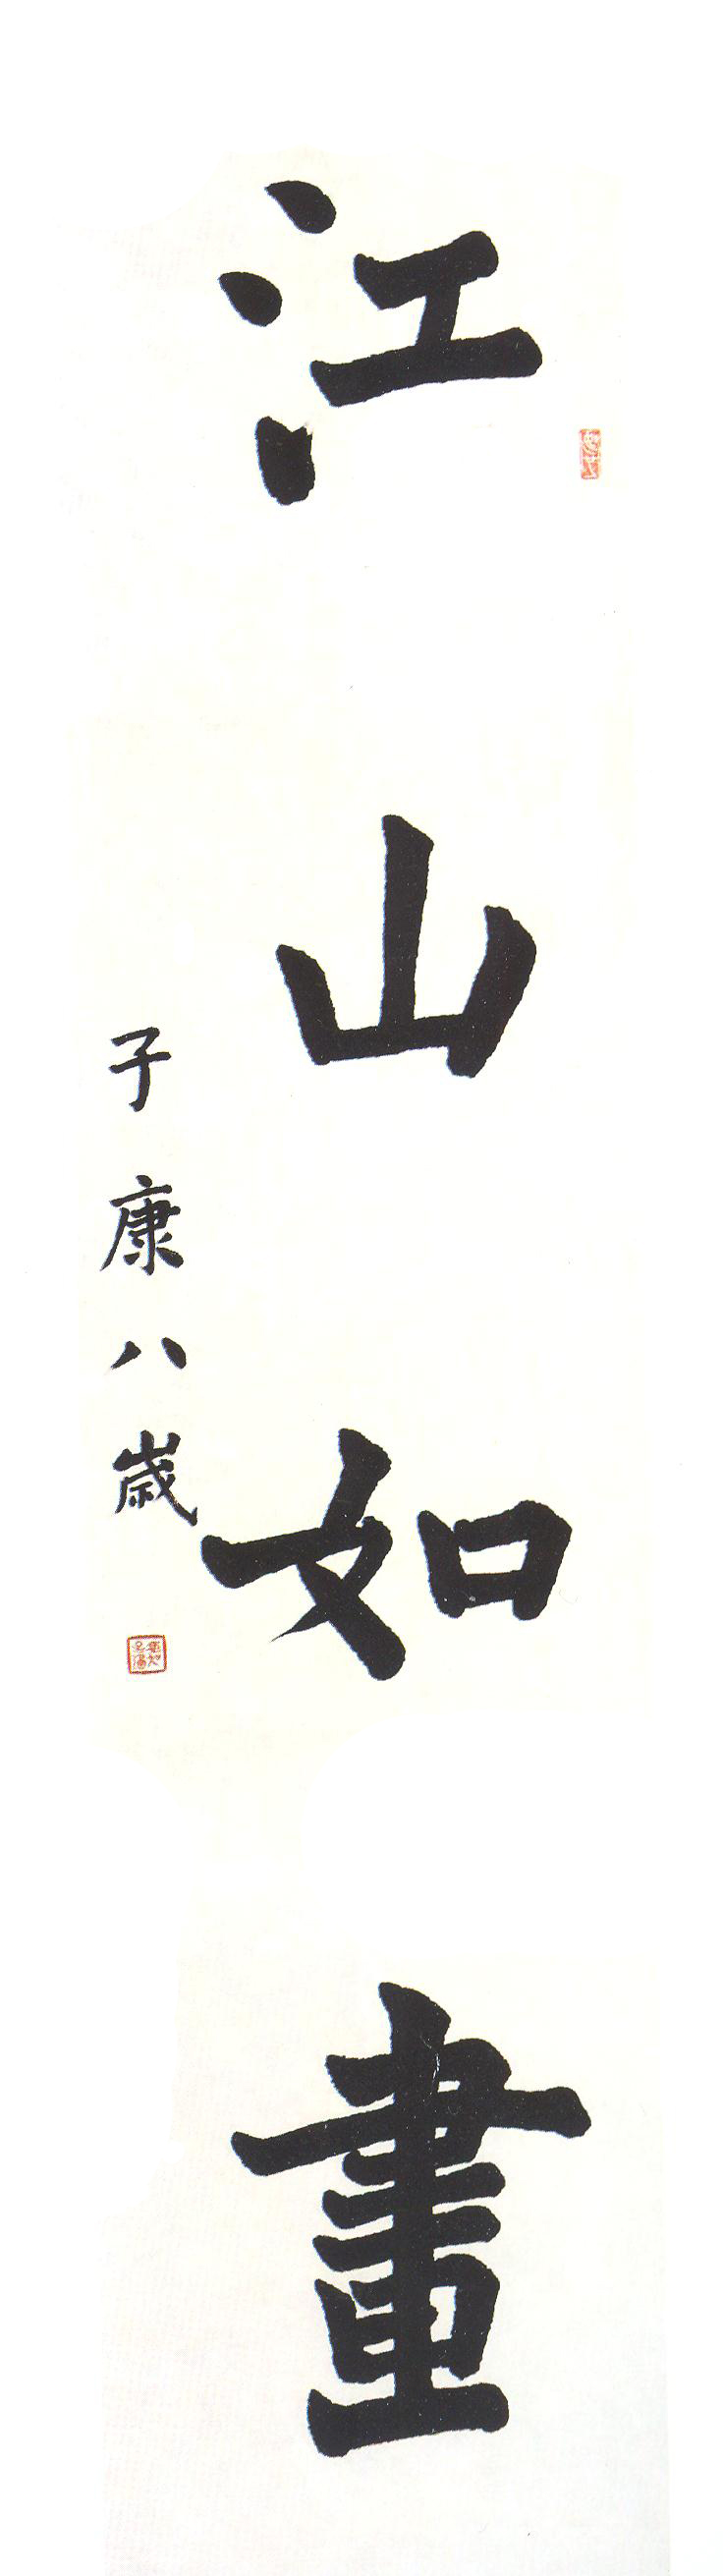 江山如畫
子康八歲